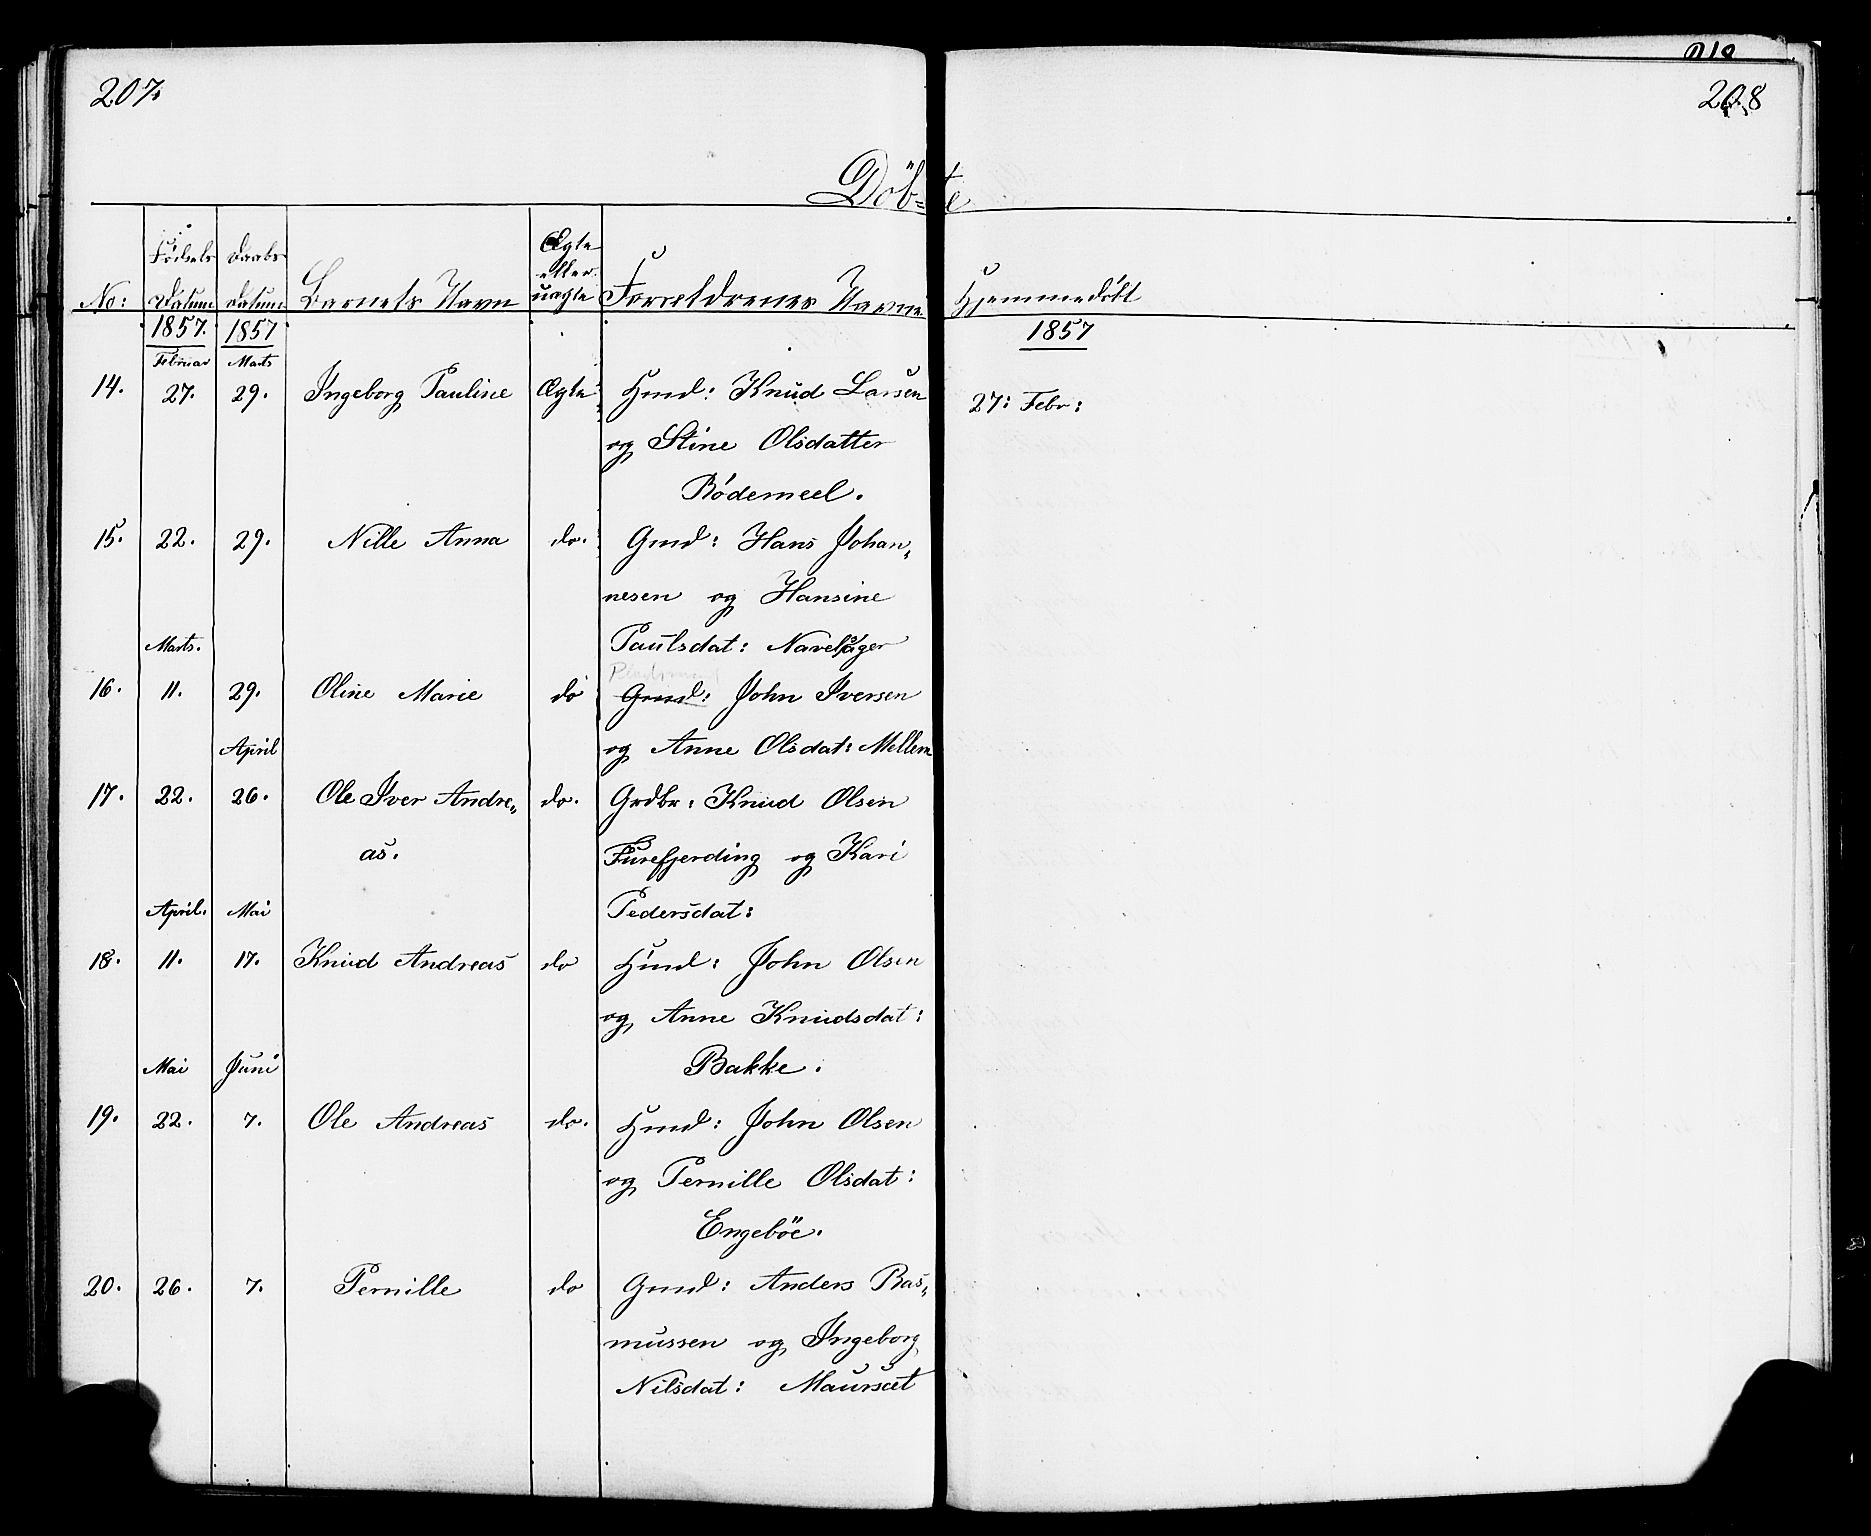 207.
208
Döb-te
No: Fødsels Datum Daabs Datum Barnets Navn Ægte eller uægte Forældrenes Navne Hjemmedöbt
1857. 1857 1857
Februar Marts
14. 27. 29. Ingeborg Pauline Ægte Hmd: Knud Larsen 27: Febr:
og Stine Olsdatter
Bödemeel.
15. 22. 29. Nille Anna do. Gmd: Hans Johan„
nesen og Hansine
Marts. Paulsdat: Navelsager
16. 11. 29. Oline Marie do Gmd: John Iversen
April og Anne Olsdat: Mellem
17. 22. 26. Ole Iver Andre„ do. Grdbr: Knud Olsen
as. Furefjerding og Kari
April. Mai Pedersdat:
18. 11. 17. Knud Andreas do Hmd: John Olsen
og Anne Knudsdat:
Mai Juni Bakke.
19. 22. 7. Ole Andreas do. Hmd: John Olsen
og Pernille Olsdat:
Engeböe.
20. 26. 7. Pernille do Gmd: Anders Ras„
mussen og Ingeborg
Nilsdat: Maursæt